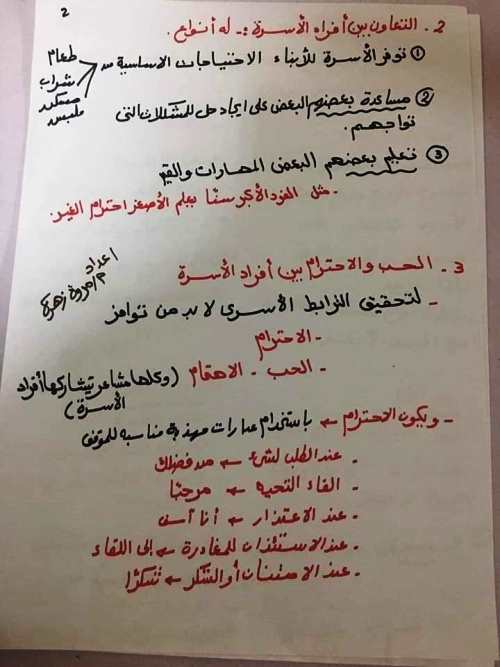 2
2. التعاون بين أفراد الأسرة :- له أنواع.
① توفر الأسرة للأبناء الاحتياجات الأساسية من
طعام
شراب
مسكن
ملبس
② مساعدة بعضهم البعض على ايجاد حل للمشكلات التى
تواجههم.
③ تعليم بعضهم البعض المهارات والقيم
- مثل الفرد الأكبر سنًا يعلم الأصغر احترام الغير.
اعداد
م/مروة زهرة
3. الحب والاحترام بين أفراد الأسرة
- لتحقيق الترابط الأسرى لابد من توافر
- الاحترام
- الحب - الاهتمام (وكلها مشاعر تيشاركها أفراد
الأسرة)
- ويكون الاحترام ← باستخدام عبارات مهذبة مناسبة للموقف
- عند الطلب لشئ ← من فضلك
- القاء التحيه ← مرحبًا
- عند الاعتذار ← أنا آسف
- عند الاستئذان للمغادرة ← إلى اللقاء
- عند الامتنان أو الشكر ← شكرًا